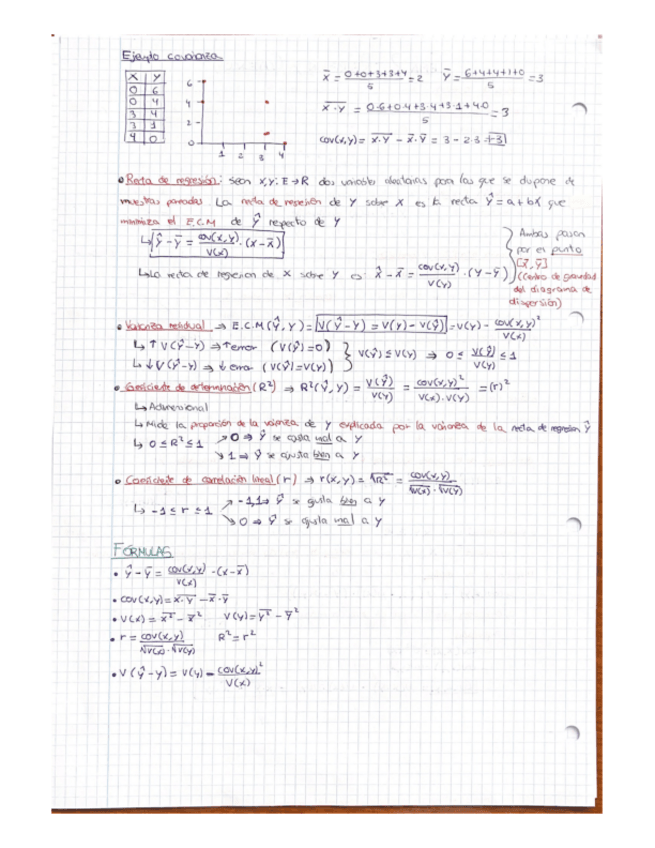 Ejemplo covarianza
X Y
0 6
0 4
3 4
3 1
4 0
6
4
2
0
1 2 3 4
x̄ = (0+0+3+3+4)/5 = 2   ȳ = (6+4+4+1+0)/5 = 3
\overline{x·y} = (0·6+0·4+3·4+3·1+4·0)/5 = 3
cov(x,y) = \overline{x·y} − x̄·ȳ = 3 − 2·3 = -3
• Recta de regresión: sean x,y: E→R dos variables aleatorias para las que se dispone de
muestras pareadas. La recta de regresión de Y sobre X es la recta ŷ = a+bx que
minimiza el E.C.M de ŷ respecto de y
↳ ŷ − ȳ = cov(x,y)/V(x) · (x − x̄)
↳ La recta de regresión de x sobre y es: x̂ − x̄ = cov(x,y)/V(y) · (y − ȳ)
Ambas pasan
por el punto
[x̄, ȳ]
(Centro de gravedad
del diagrama de
dispersión)
• Varianza residual ⇒ E.C.M(ŷ,y) = V(ŷ−y) = V(y) − V(ŷ) = V(y) − cov(x,y)²/V(x)
↳ ↑V(ŷ−y) ⇒ ↑error (V(ŷ)=0)
↳ ↓V(ŷ−y) ⇒ ↓error (V(ŷ)=V(y))
} V(ŷ) ≤ V(y) ⇒ 0 ≤ V(ŷ)/V(y) ≤ 1
• Coeficiente de determinación (R²) ⇒ R²(ŷ,y) = V(ŷ)/V(y) = cov(x,y)²/(V(x)·V(y)) = (r)²
↳ Adimensional
↳ Mide la proporción de la varianza de y explicada por la varianza de la recta de regresión ŷ
↳ 0 ≤ R² ≤ 1 ↗ 0 ⇒ ŷ se ajusta mal a y
↘ 1 ⇒ ŷ se ajusta bien a y
• Coeficiente de correlación lineal (r) ⇒ r(x,y) = √R² = cov(x,y)/(√V(x)·√V(y))
↳ -1 ≤ r ≤ 1 ↗ -1,1 ⇒ ŷ se ajusta bien a y
↘ 0 ⇒ ŷ se ajusta mal a y
FÓRMULAS
• ŷ − ȳ = cov(x,y)/V(x) · (x − x̄)
• cov(x,y) = \overline{x·y} − x̄·ȳ
• V(x) = \overline{x²} − x̄²   V(y) = \overline{y²} − ȳ²
• r = cov(x,y)/(√V(x)·√V(y))   R² = r²
• V(ŷ−y) = V(y) − cov(x,y)²/V(x)